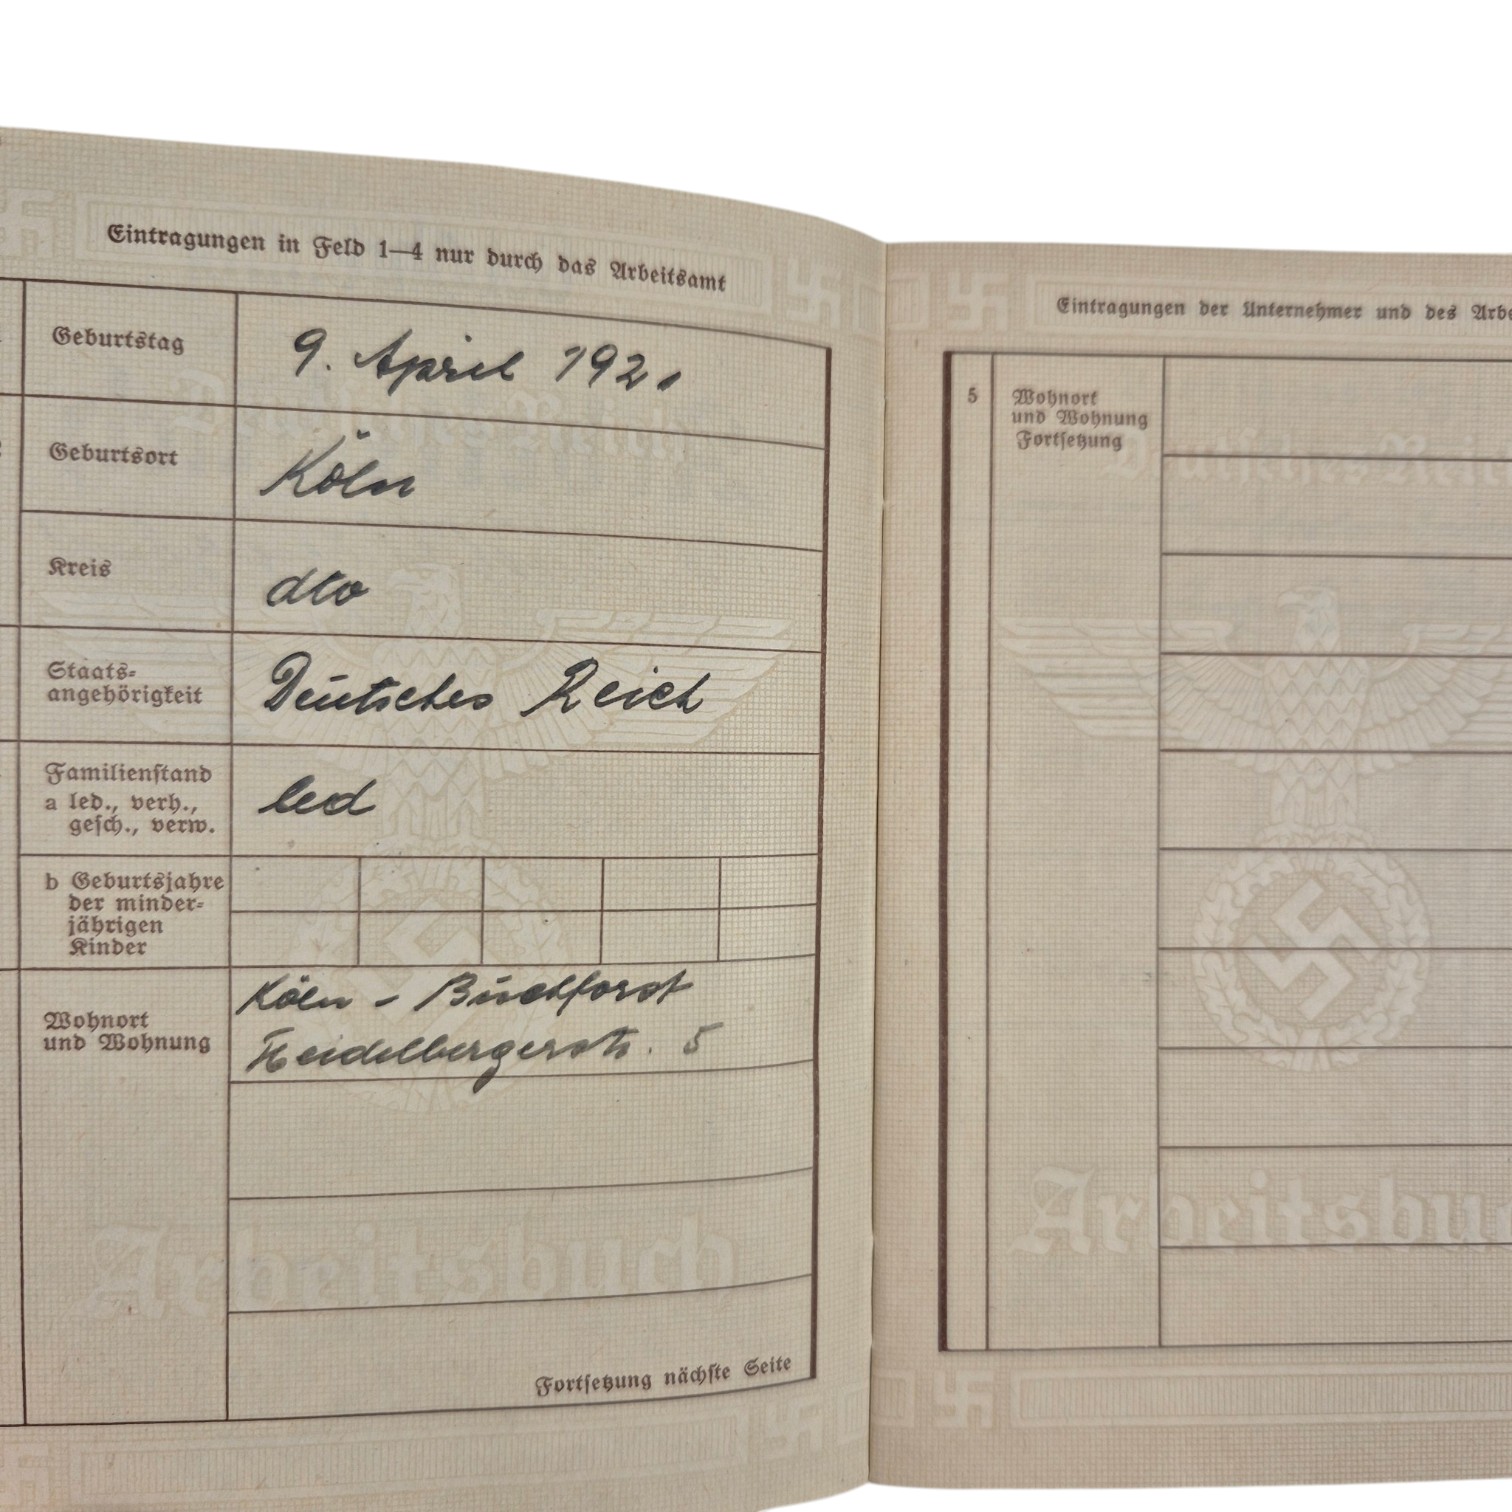 Eintragungen in Feld 1—4 nur durch das Arbeitsamt
Geburtstag
9. April
Geburtsort
Köln
Kreis
dto
Staats-
angehörigkeit
Deutsches Reich
Familienstand
a led., verh.,
gesch., verw.
led
b Geburtsjahre
der minder-
jährigen
Kinder
Wohnort
und Wohnung
Köln - Buchforst
Heidelbergerstr. 5
Fortsetzung nächste Seite
Deutsches Reich
Arbeitsbuch
Eintragungen der Unternehmer und des Arbe
5
Wohnort
und Wohnung
Fortsetzung
Deutsches Reich
Arbeitsbu